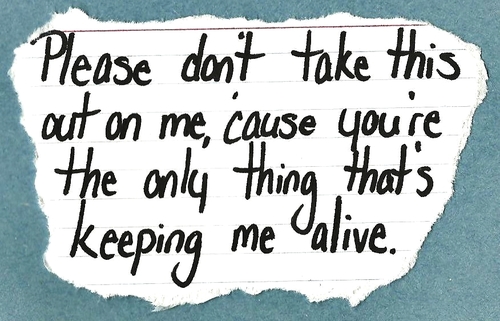 Please don't take this
out on me, 'cause you're
the only thing that's
keeping me alive.